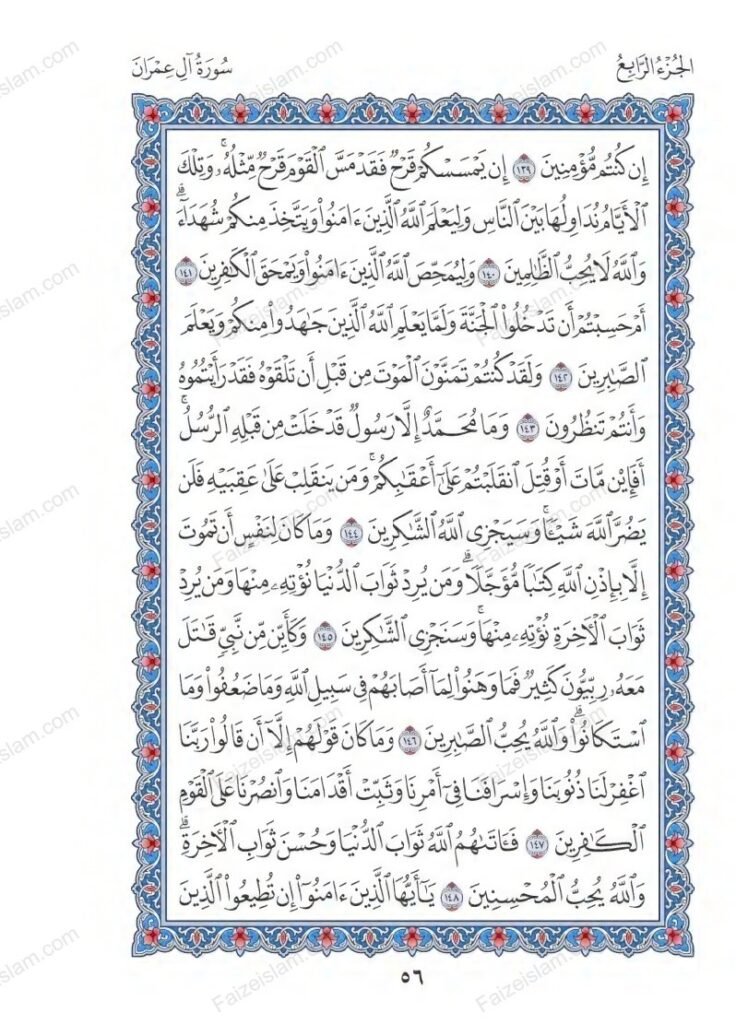 الجُزْءُ الرَّابِعُ
سُورَةُ آلِ عِمْرَانَ
إِن كُنتُم مُّؤْمِنِينَ ١٣٩ إِن يَمْسَسْكُمْ قَرْحٌ فَقَدْ مَسَّ ٱلْقَوْمَ قَرْحٌ مِّثْلُهُۥ ۚ وَتِلْكَ
ٱلْأَيَّامُ نُدَاوِلُهَا بَيْنَ ٱلنَّاسِ وَلِيَعْلَمَ ٱللَّهُ ٱلَّذِينَ ءَامَنُوا۟ وَيَتَّخِذَ مِنكُمْ شُهَدَآءَ ۗ
وَٱللَّهُ لَا يُحِبُّ ٱلظَّـٰلِمِينَ ١٤٠ وَلِيُمَحِّصَ ٱللَّهُ ٱلَّذِينَ ءَامَنُوا۟ وَيَمْحَقَ ٱلْكَـٰفِرِينَ ١٤١
أَمْ حَسِبْتُمْ أَن تَدْخُلُوا۟ ٱلْجَنَّةَ وَلَمَّا يَعْلَمِ ٱللَّهُ ٱلَّذِينَ جَـٰهَدُوا۟ مِنكُمْ وَيَعْلَمَ
ٱلصَّـٰبِرِينَ ١٤٢ وَلَقَدْ كُنتُمْ تَمَنَّوْنَ ٱلْمَوْتَ مِن قَبْلِ أَن تَلْقَوْهُ فَقَدْ رَأَيْتُمُوهُ
وَأَنتُمْ تَنظُرُونَ ١٤٣ وَمَا مُحَمَّدٌ إِلَّا رَسُولٌ قَدْ خَلَتْ مِن قَبْلِهِ ٱلرُّسُلُ ۚ
أَفَإِي۟ن مَّاتَ أَوْ قُتِلَ ٱنقَلَبْتُمْ عَلَىٰٓ أَعْقَـٰبِكُمْ ۚ وَمَن يَنقَلِبْ عَلَىٰ عَقِبَيْهِ فَلَن
يَضُرَّ ٱللَّهَ شَيْـًٔا ۗ وَسَيَجْزِى ٱللَّهُ ٱلشَّـٰكِرِينَ ١٤٤ وَمَا كَانَ لِنَفْسٍ أَن تَمُوتَ
إِلَّا بِإِذْنِ ٱللَّهِ كِتَـٰبًا مُّؤَجَّلًا ۗ وَمَن يُرِدْ ثَوَابَ ٱلدُّنْيَا نُؤْتِهِۦ مِنْهَا وَمَن يُرِدْ
ثَوَابَ ٱلْأَخِرَةِ نُؤْتِهِۦ مِنْهَا ۚ وَسَنَجْزِى ٱلشَّـٰكِرِينَ ١٤٥ وَكَأَيِّن مِّن نَّبِىٍّ قَـٰتَلَ
مَعَهُۥ رِبِّيُّونَ كَثِيرٌ فَمَا وَهَنُوا۟ لِمَآ أَصَابَهُمْ فِى سَبِيلِ ٱللَّهِ وَمَا ضَعُفُوا۟ وَمَا
ٱسْتَكَانُوا۟ ۗ وَٱللَّهُ يُحِبُّ ٱلصَّـٰبِرِينَ ١٤٦ وَمَا كَانَ قَوْلَهُمْ إِلَّآ أَن قَالُوا۟ رَبَّنَا
ٱغْفِرْ لَنَا ذُنُوبَنَا وَإِسْرَافَنَا فِىٓ أَمْرِنَا وَثَبِّتْ أَقْدَامَنَا وَٱنصُرْنَا عَلَى ٱلْقَوْمِ
ٱلْكَـٰفِرِينَ ١٤٧ فَـَٔاتَىٰهُمُ ٱللَّهُ ثَوَابَ ٱلدُّنْيَا وَحُسْنَ ثَوَابِ ٱلْأَخِرَةِ ۗ
وَٱللَّهُ يُحِبُّ ٱلْمُحْسِنِينَ ١٤٨ يَـٰٓأَيُّهَا ٱلَّذِينَ ءَامَنُوٓا۟ إِن تُطِيعُوا۟ ٱلَّذِينَ
٥٦
Faizeislam.com